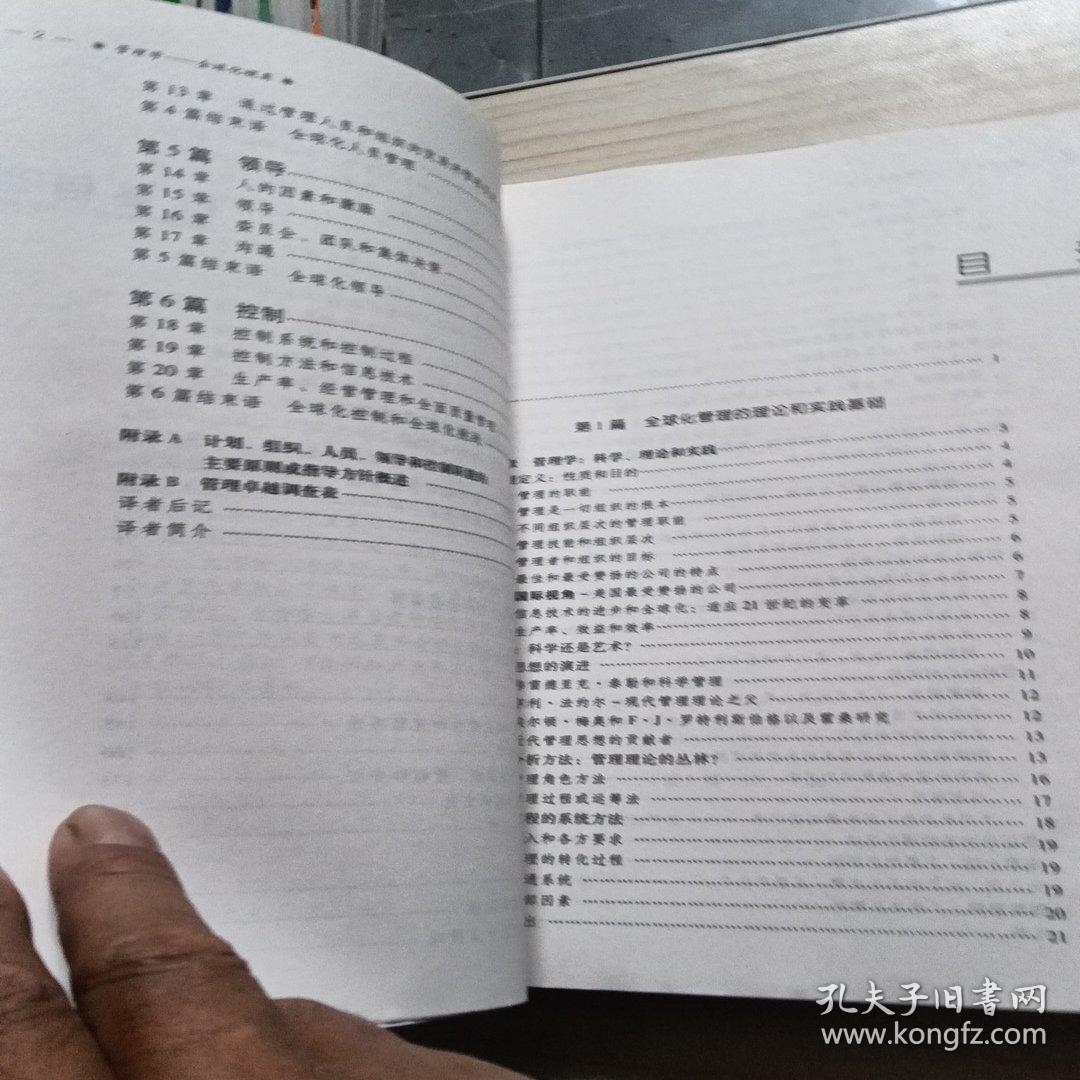 — 2 —
管理学——全球化视角
第 13 章 通过管理人员和组织的发展
第 4 篇结束语 全球化人员管理
第 5 篇 领导
第 14 章 人的因素和激励
第 15 章 领导
第 16 章 委员会、团队和集体决策
第 17 章 沟通
第 5 篇结束语 全球化领导
第 6 篇 控制
第 18 章 控制系统和控制过程
第 19 章 控制方法和信息技术
第 20 章 生产率、经营管理和全面质量管理
第 6 篇结束语 全球化控制和全球化挑战
附录 A 计划、组织、人员、领导和控制
主要原则或指导方针概述
附录 B 管理卓越调查表
译者后记
译者简介
目
1
第 1 篇 全球化管理的理论和实践基础
管理学：科学、理论和实践 3
定义：性质和目的 4
管理的职能 4
管理是一切组织的根本 5
不同组织层次的管理职能 5
管理技能和组织层次 5
管理者和组织的目标 6
最佳和最受赞扬的公司的特点 6
国际视角－美国最受赞扬的公司 7
信息技术的进步和全球化：适应 21 世纪的变革 8
生产率、效益和效率 8
：科学还是艺术？ 9
思想的演进 10
雷德里克·泰勒和科学管理 11
利·法约尔－现代管理理论之父 12
尔顿·梅奥和 F·J·罗特利斯伯格以及霍桑研究 12
代管理思想的贡献者 13
析方法：管理理论的丛林？ 13
理角色方法 16
理过程或运筹法 17
程的系统方法 18
入和各方要求 19
理的转化过程 19
通系统 19
部因素 20
出 21
孔夫子旧書网
www.kongfz.com